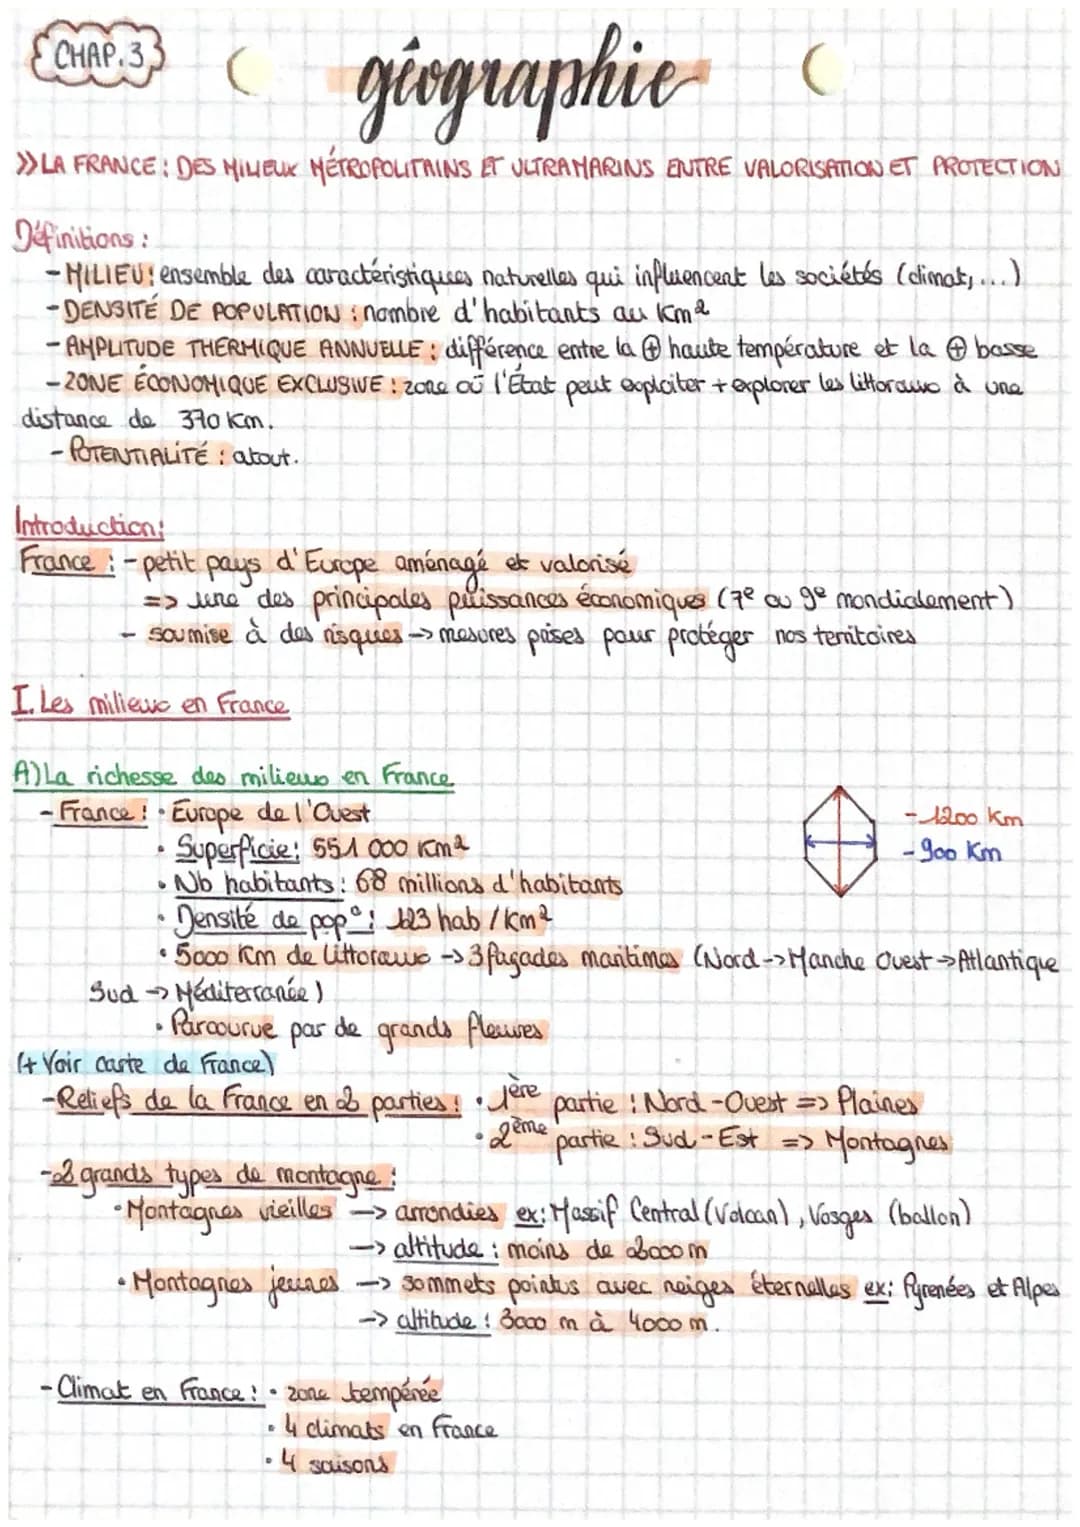 CHAP.3
géographie
>> LA FRANCE : DES MILIEUX MÉTROPOLITAINS ET ULTRAMARINS ENTRE VALORISATION ET PROTECTION
Définitions :
- MILIEU : ensemble des caractéristiques naturelles qui influencent les sociétés (climat, ...)
- DENSITÉ DE POPULATION : nombre d'habitants au Km²
- AMPLITUDE THERMIQUE ANNUELLE : différence entre la ⊕ haute température et la ⊕ basse
- ZONE ÉCONOMIQUE EXCLUSIVE : zone où l'État peut exploiter + explorer les littoraux à une
distance de 370 Km.
- POTENTIALITÉ : atout.
Introduction :
France : - petit pays d'Europe aménagé et valorisé
=> une des principales puissances économiques (7e ou 9e mondialement)
- soumise à des risques -> mesures prises pour protéger nos territoires
I. Les milieux en France
A) La richesse des milieux en France
- France : • Europe de l'Ouest
- 1200 Km
• Superficie : 551 000 Km²
- 900 Km
• Nb habitants : 68 millions d'habitants
• Densité de pop° : 123 hab / Km²
• 5000 Km de littoraux -> 3 façades maritimes (Nord -> Manche Ouest -> Atlantique
Sud -> Méditerranée)
• Parcourue par de grands fleuves
(+ Voir carte de France)
- Reliefs de la France en 2 parties : • 1ère partie : Nord-Ouest => Plaines
• 2ème partie : Sud-Est => Montagnes
- 2 grands types de montagne :
• Montagnes vieilles -> arrondies ex : Massif Central (Volcan), Vosges (ballon)
-> altitude : moins de 2000 m
• Montagnes jeunes -> sommets pointus avec neiges éternelles ex : Pyrenées et Alpes
-> altitude : 3000 m à 4000 m.
- Climat en France : • zone tempérée
• 4 climats en France
• 4 saisons